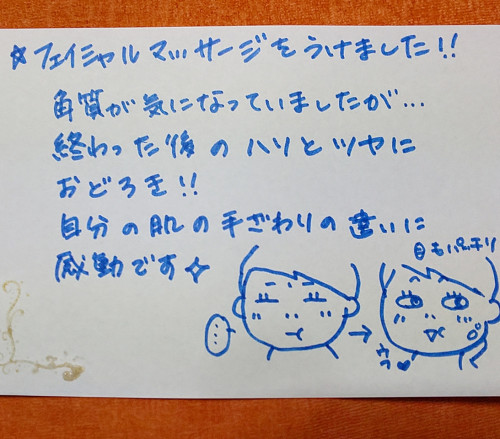 ☆フェイシャルマッサージをうけました!!
角質が気になっていましたが…
終わった後のハリとツヤに
おどろき!!
自分の肌の手ざわりの違いに
感動です☆
目もパッチリ
…
ウフ♥